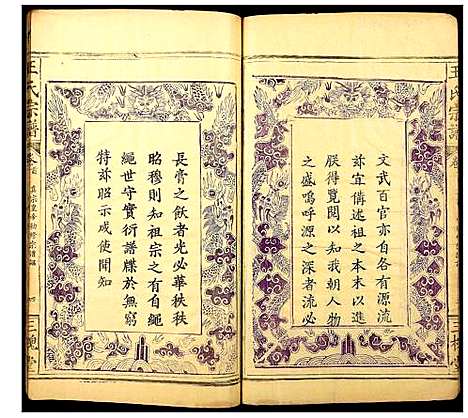 王氏宗譜
文武百官亦自各有源流
茲宜備述祖之本末以進
朕得覽閱以知我朝人物
之盛嗚呼源之深者流必
長膏之飲者光必華秩秩
昭穆則知祖宗之有自繩
繩世守實衍譜牒於無窮
特茲昭示咸使聞知
王氏宗譜
卷首
四
三槐堂